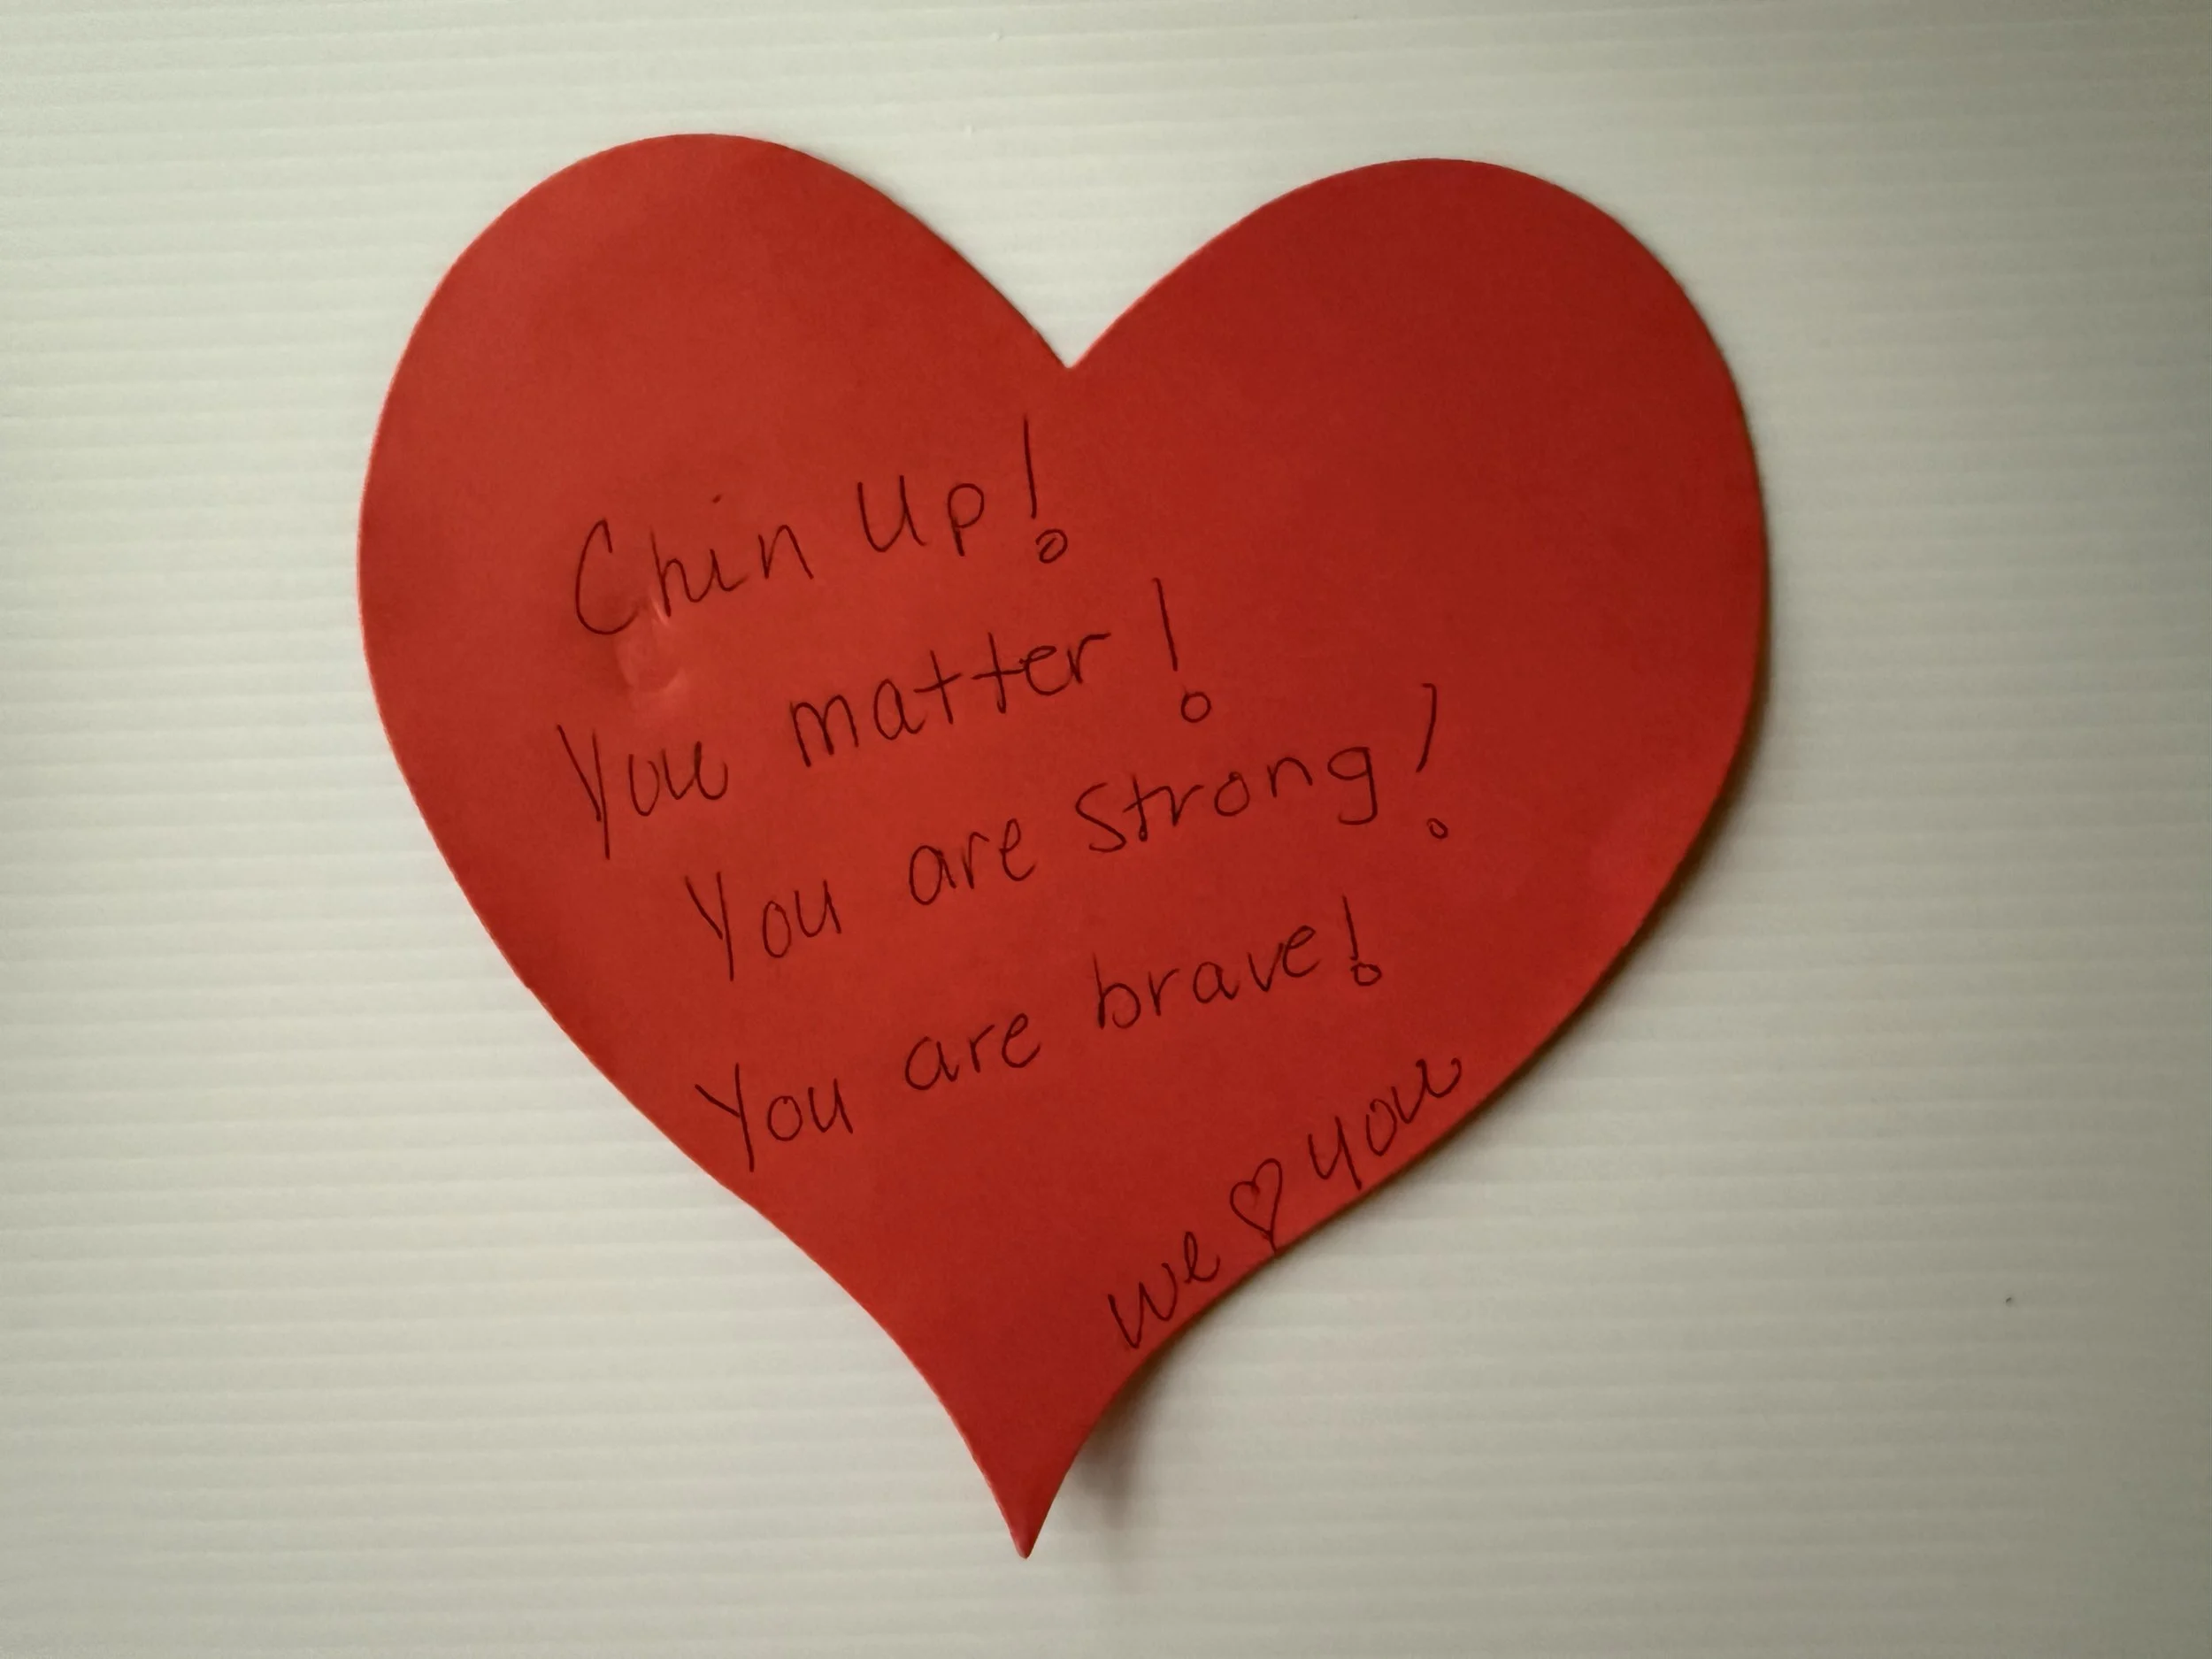 Chin Up!
You matter!
You are Strong!
You are brave!
we ♡ you